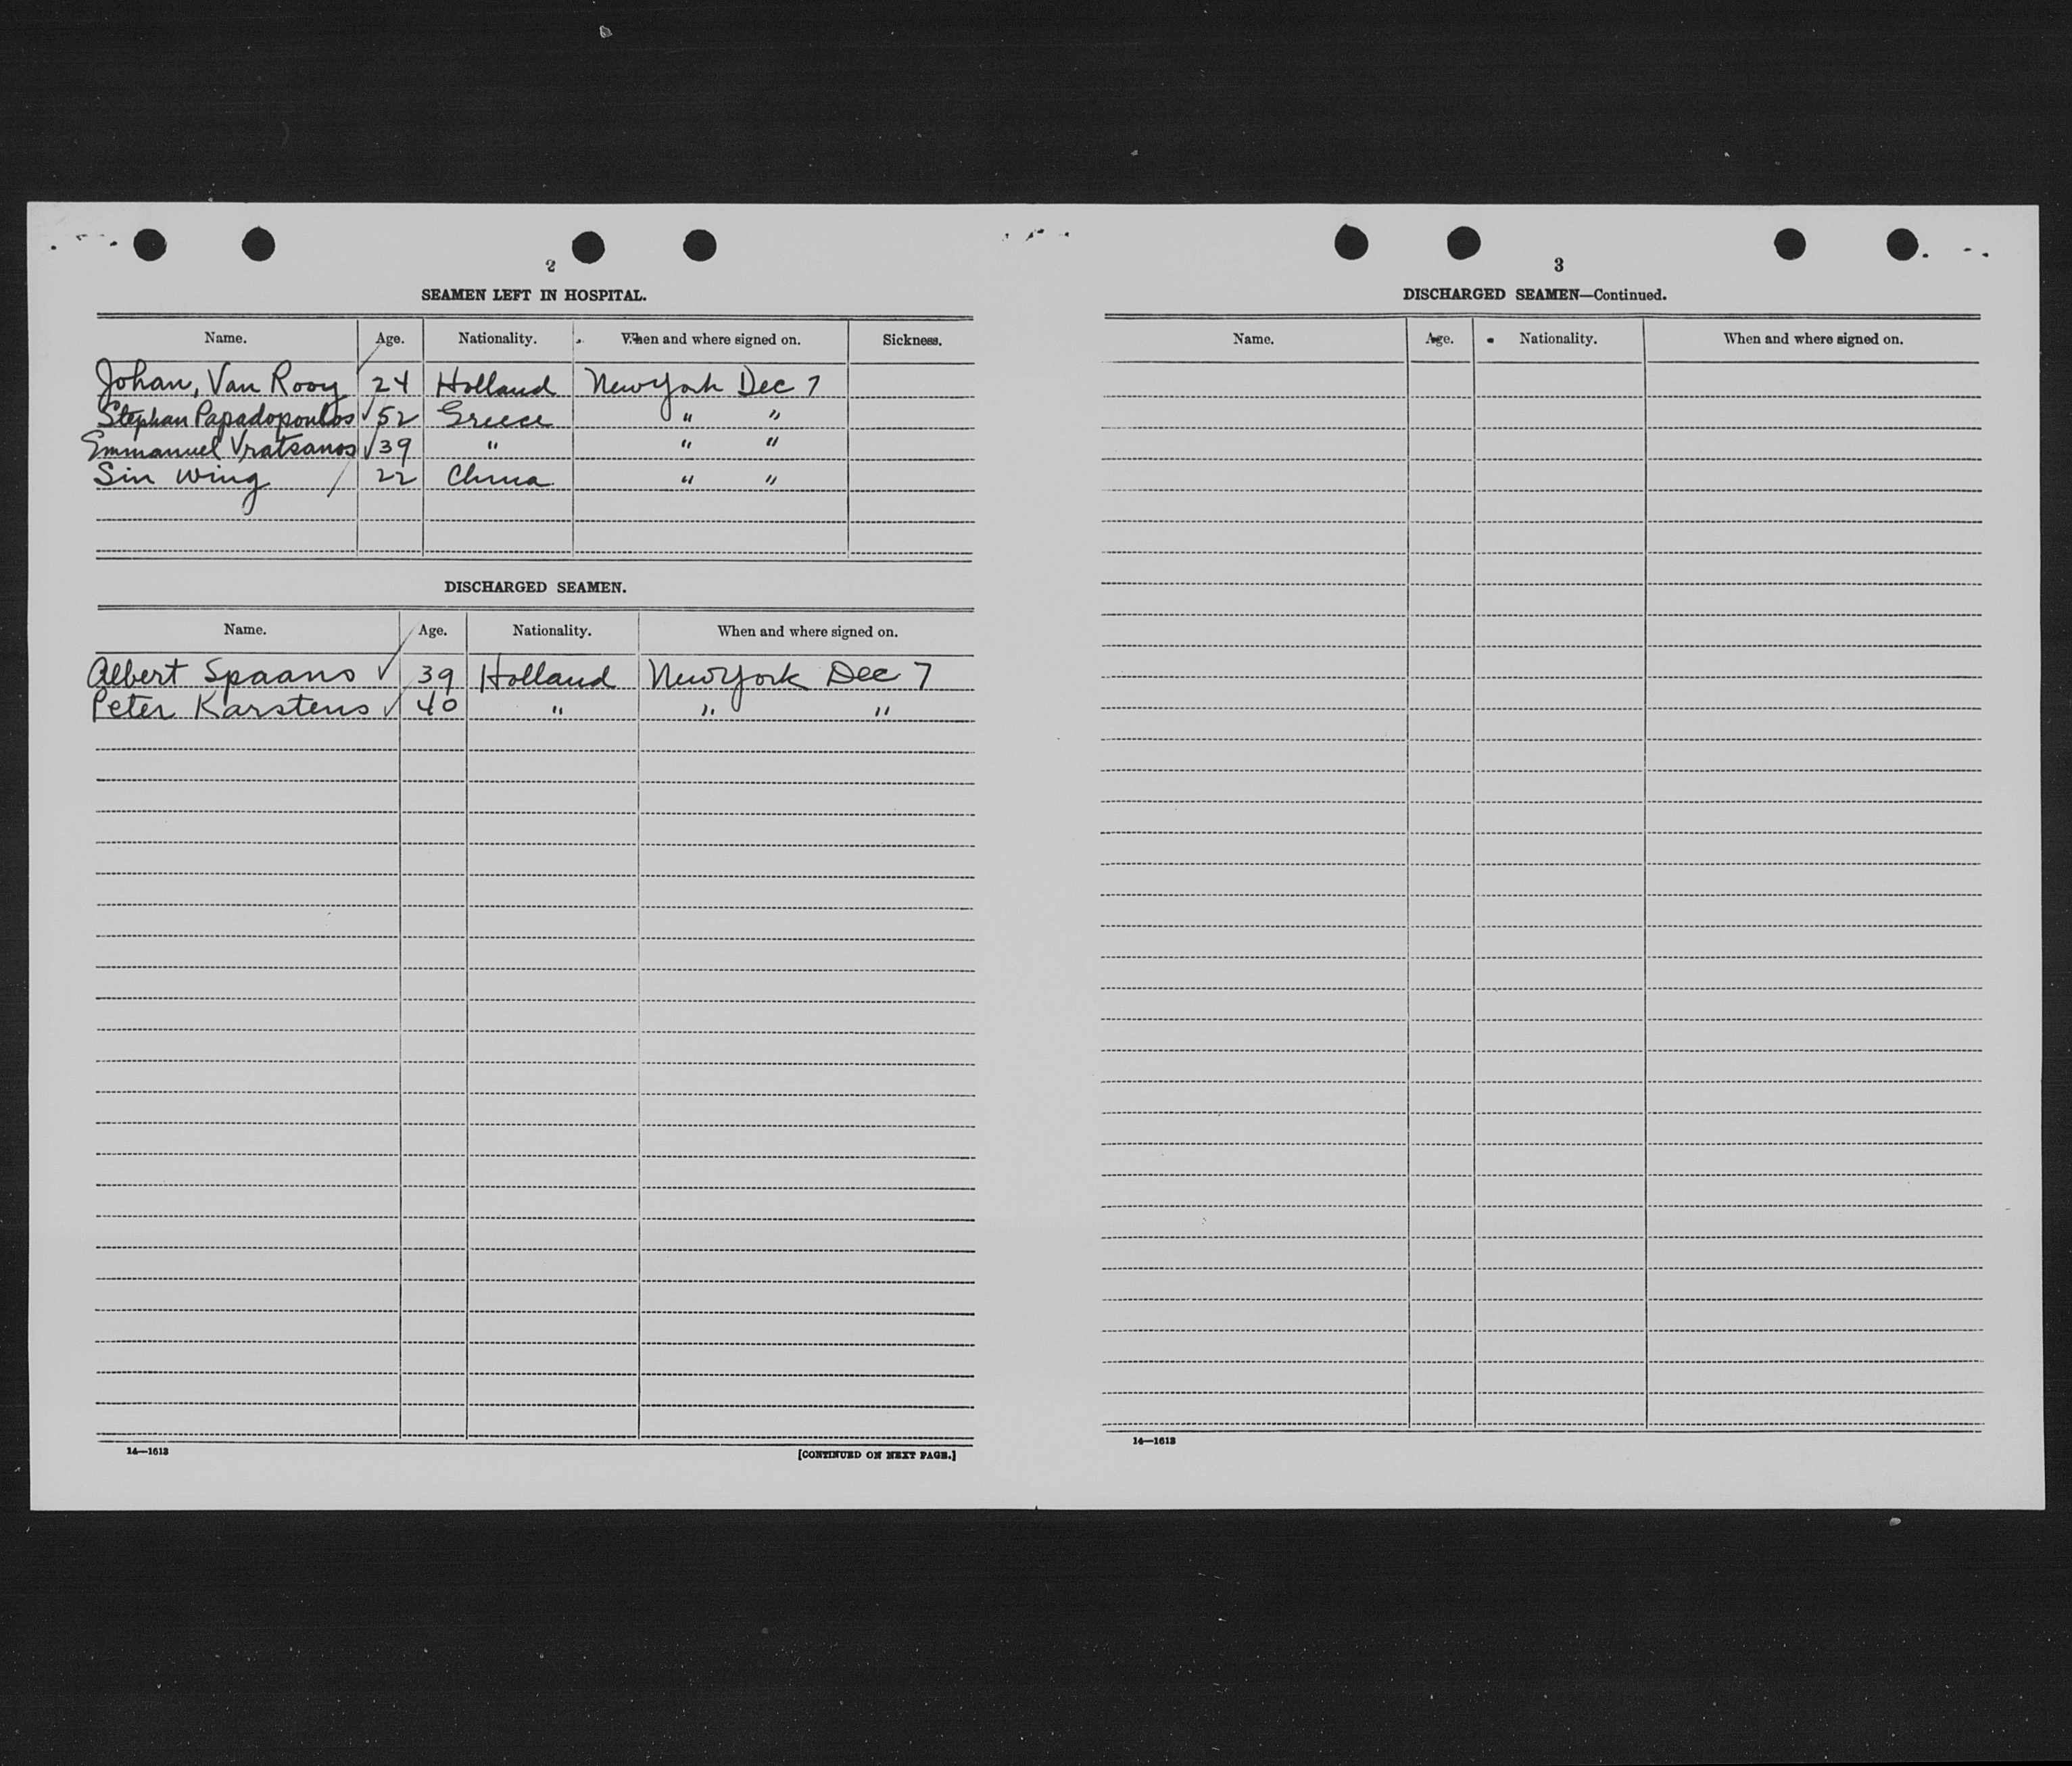 2
SEAMEN LEFT IN HOSPITAL.
Name. Age. Nationality. When and where signed on. Sickness.
Johan, Van Rooy 24 Holland New York Dec 7
Stephan Papadopoulos √ 52 Greece " "
Emmanuel Vratsanos √ 39 " " "
Sin Wing / 22 China " "
DISCHARGED SEAMEN.
Name. Age. Nationality. When and where signed on.
Albert Spaans √ 39 Holland New York Dec 7
Peter Karstens √ 40 " " "
14—1613
[CONTINUED ON NEXT PAGE.]
3
DISCHARGED SEAMEN—Continued.
Name. Age. Nationality. When and where signed on.
14—1613